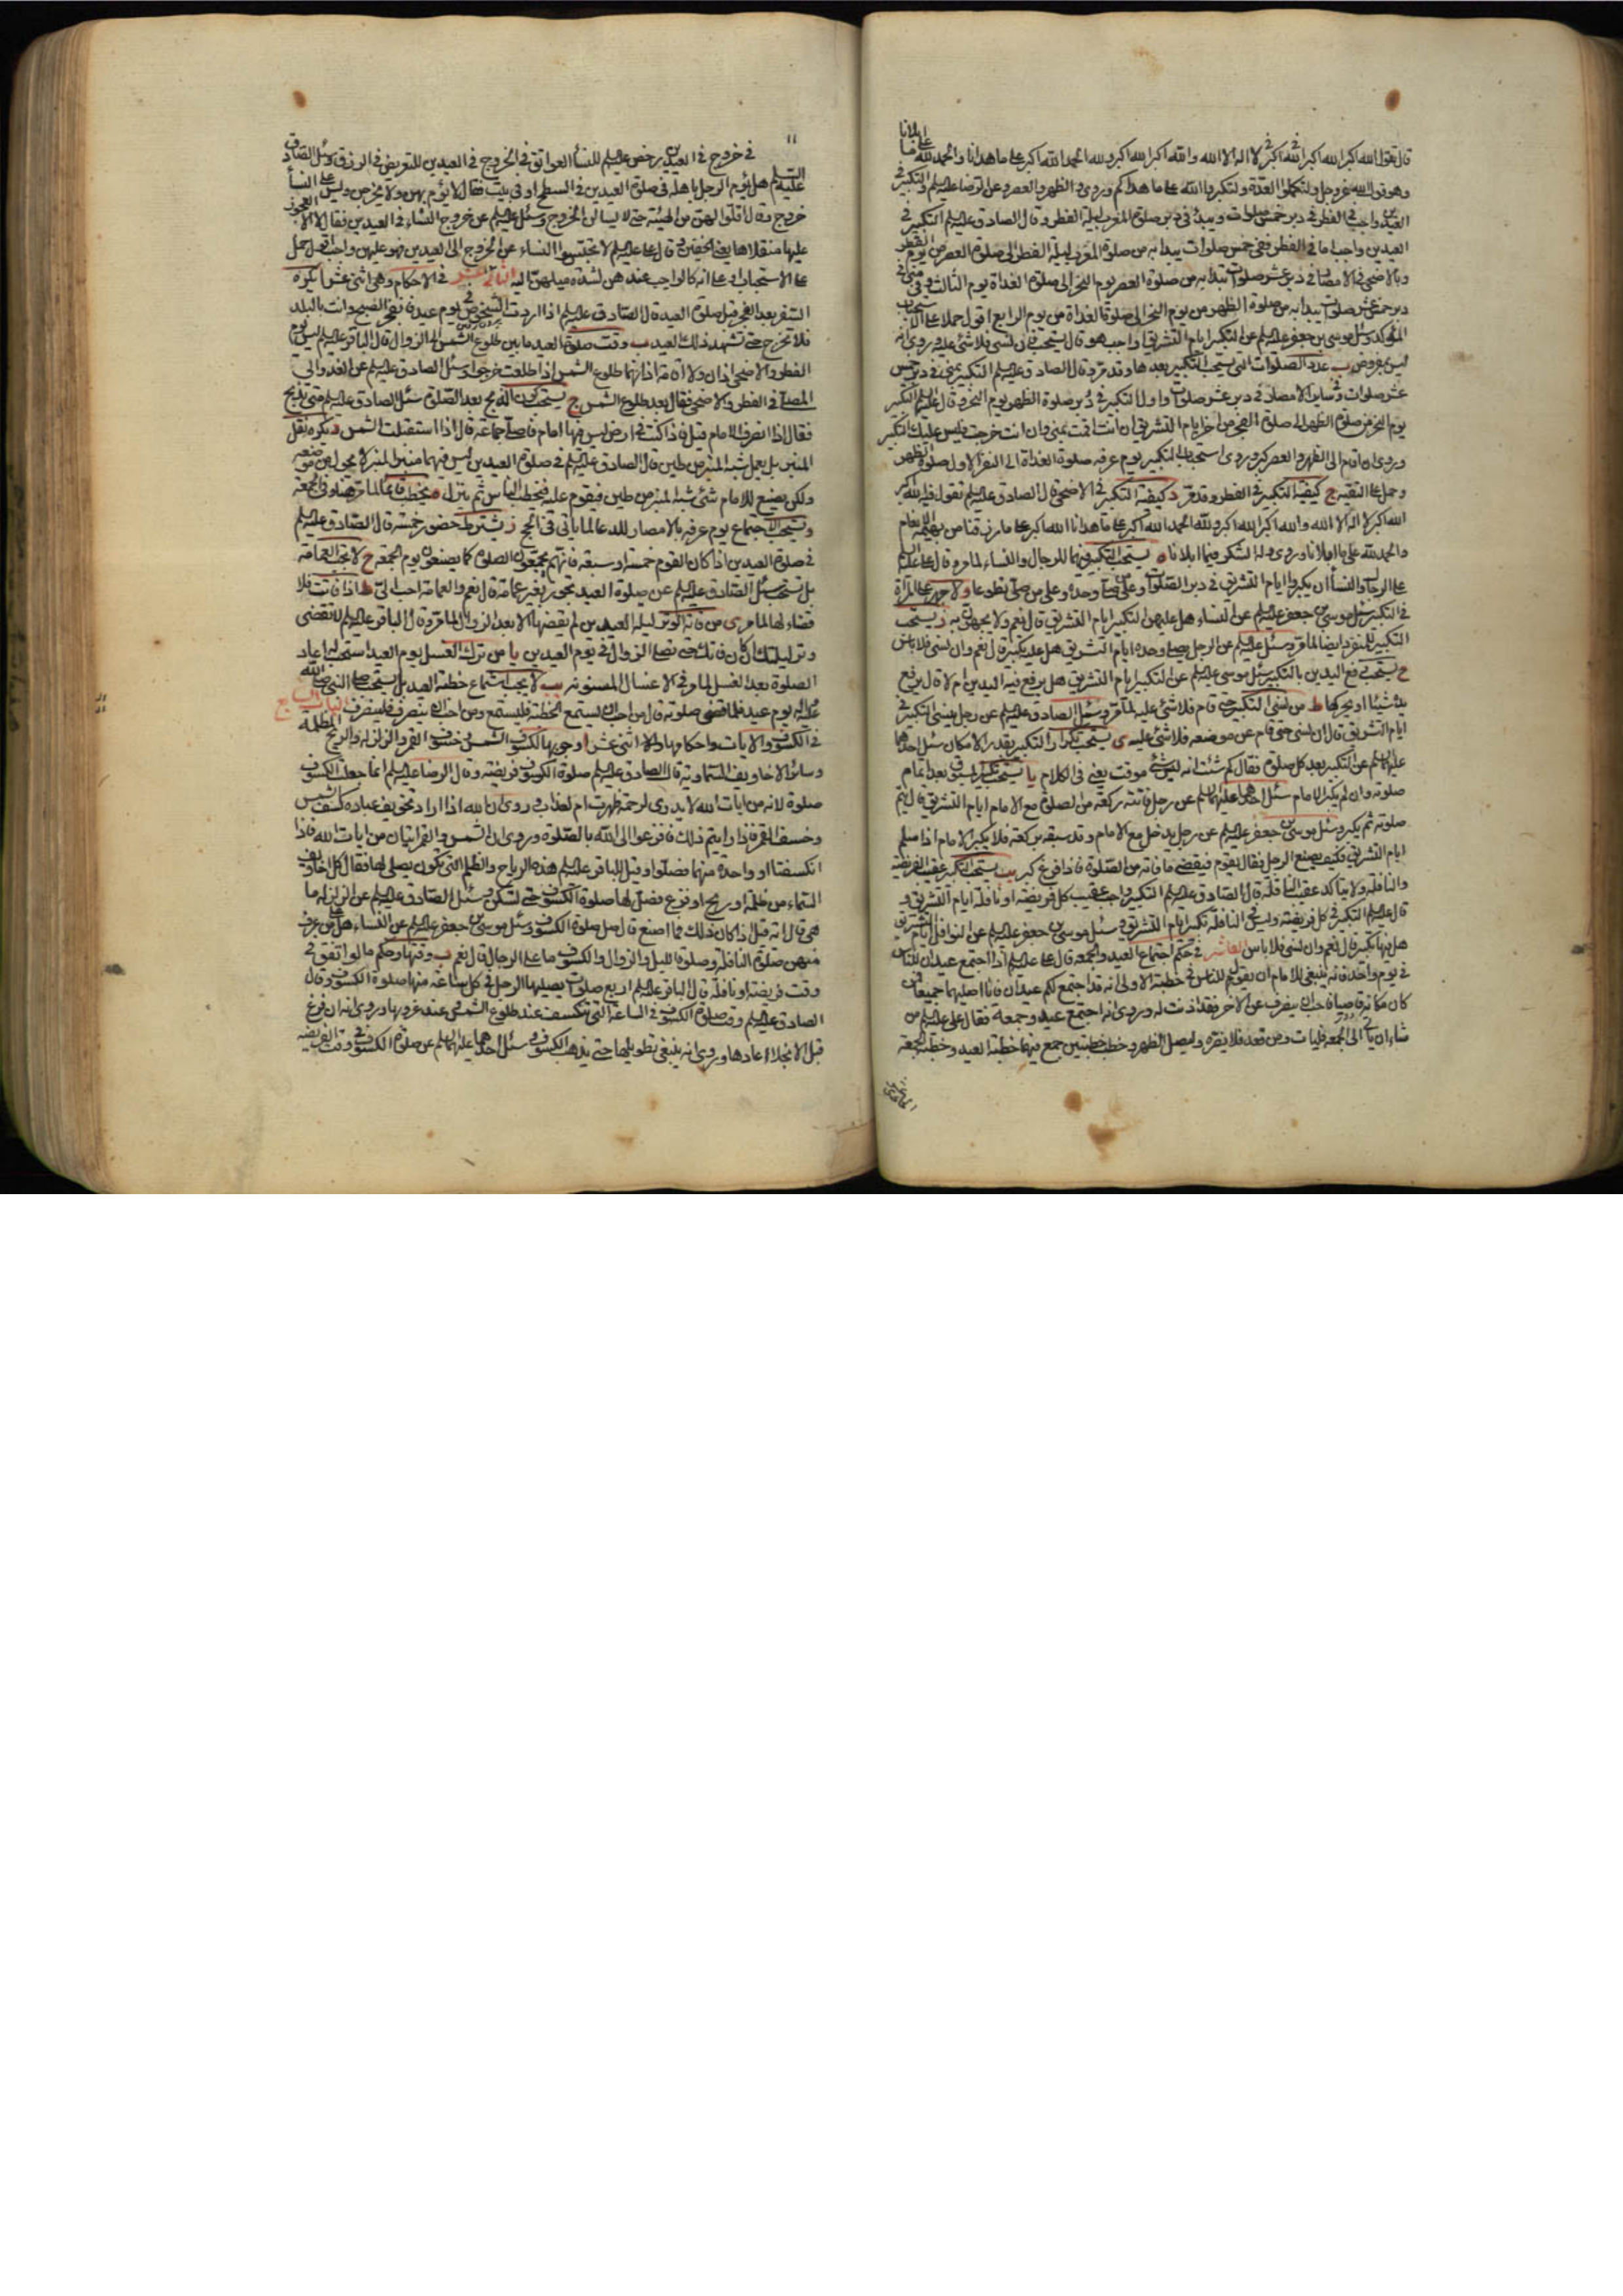 قال تقول الله اكبر الله اكبر الله اكبر لا اله الا الله والله اكبر الله اكبر ولله الحمد الله اكبر على ما هدانا والحمد لله على ما ابلانا
وهو قول الله عز وجل ولتكملوا العدة ولتكبروا الله على ما هداكم وروى والظهر والعصر وعن الرضا عليه السلم والتكبير في
العيدين واجب في الفطر في دبر خمس صلوات ويبدأ في دبر صلوة المغرب ليلة الفطر وقال الصادق عليه السلم التكبير في
العيدين واجب اما في الفطر ففي خمس صلوات يبدأ به من صلوة المغرب ليلة الفطر الى صلوة العصر من يوم الفطر
وبالاضحى في الامصار في دبر عشر صلوات تبدأ به من صلوة الظهر يوم النحر الى صلوة الغداة يوم الثالث وفي منى في
دبر خمس عشر صلوات يبدأ به من صلوة الظهر من يوم النحر الى صلوة الغداة من يوم الرابع اقول حملا على الاستحباب
المؤكد وسئل موسى بن جعفر عليه السلم عن التكبير ايام التشريق اواجب هو قال يستحب فان نسى فلا شئ عليه وروى انه
ليس بمفروض ب عدد الصلوات التى يستحب التكبير بعدها وقد مر وقال الصادق عليه السلم التكبير بمنى في دبر خمس
عشر صلوات وفي ساير الامصار في دبر عشر صلوات واول التكبير في دبر صلوة الظهر يوم النحر وقال عليه السلم التكبير
يوم النحر من صلوة الظهر الى صلوة الفجر من اخر ايام التشريق ان انت اقمت بمنى وان انت خرجت فليس عليك التكبير
وروى ان اقام الى الظهر والعصر كبر وروى استحباب التكبير يوم عرفه صلوة الغداة الى النفر الاول صلوة الظهر
وحمل على التقيه ج كيفية التكبير في الفطر وقد مر د كيفية التكبير في الاضحى قال الصادق عليه السلم تقول فيه الله اكبر
الله اكبر لا اله الا الله والله اكبر الله اكبر ولله الحمد الله اكبر على ما هدانا الله اكبر على ما رزقنا من بهيمة الانعام
والحمد لله على ما ابلانا وروى وله الشكر فيما ابلانا ه يستحب التكبير فيهما للرجال والنساء لما مر وقال على عليه السلم
على الرجال والنساء ان يكبروا ايام التشريق في دبر الصلوات وعلى من صلى وحده وعلى من صلى تطوعا و لا جهر على المرأة
في التكبير سئل موسى بن جعفر عليه السلم عن النساء هل عليهن التكبير ايام التشريق قال نعم ولا يجهرن به ز يستحب
التكبير للمنفرد ايضا لما مر وسئل عليه السلم عن الرجل يصلى وحده ايام التشريق هل عليه تكبير قال نعم وان نسى فلا باس
ح يستحب رفع اليدين بالتكبير سئل موسى عليه السلم عن التكبير ايام التشريق هل يرفع فيه اليدين ام لا قال يرفع
يده شيئا او يحركها ط من نسى التكبير حتى قام فلا شئ عليه لما مر وسئل الصادق عليه السلم عن رجل ينسى التكبير في
ايام التشريق قال ان نسى حتى قام عن موضعه فلا شئ عليه ى يستحب تكرار التكبير بقدر الامكان سئل احدهما
عليهما السلم عن التكبير بعد كل صلوة فقال كم شئت انه ليس شئ موقت يعني في الكلام يا يستحب تكبير المسبوق بعد اتمام
صلوته وان لم يكبر الامام سئل احدهما عليهما السلم عن رجل فاتته ركعة من الصلوة مع الامام ايام التشريق قال يتم
صلوته ثم يكبر وسئل موسى بن جعفر عليه السلم عن رجل يدخل مع الامام وقد سبقه بركعة فلا يكبر الامام اذا سلم
ايام التشريق فكيف يصنع الرجل فقال يقوم فيقضى ما فاته من الصلوة فاذا فرغ كبر يب يستحب التكبير عقيب الفريضة
والنافلة ولا يتأكد عقيب النافلة قال الصادق عليه السلم التكبير واجب عقيب كل فريضة او نافلة ايام التشريق و
قال عليه السلم التكبير في كل فريضة وليس في النافلة تكبير ايام التشريق وسئل موسى بن جعفر عليه السلم عن النوافل ايام التشريق
هل فيها تكبير قال نعم وان نسى فلا باس العاشر في حكم اجتماع العيد والجمعه قال على عليه السلم اذا اجتمع عيدان للناس
في يوم واحد فانه ينبغي للامام ان يقول للناس في خطبة الاولى انه قد اجتمع لكم عيدان فانا اصليهما جميعا فمن
كان مكانه قاصيا فاحب ان ينصرف عن الاخر فقد اذنت له وروى انه اجتمع عيد وجمعة فقال على عليه السلم من
شاء ان ياتى الى الجمعه فليات ومن قعد فلا يضره وليصل الظهر وخطب خطبتين جمع فيهما خطبة العيد وخطبة الجمعه
في خروج في العيدين رخص عليه السلم للنساء العواتق في الخروج في العيدين للتعرض في الرزق وسئل الصادق
عليه السلم هل يؤم الرجل باهله في صلوة العيدين في السطح او في بيت فقال لا يؤم بهن ولا يخرجن وليس على النساء
خروج وقال اقلوا لهن من الهيئة حتى لا يسالن الخروج وسئل عليه السلم عن خروج النساء في العيدين فقال لا الا العجوز
عليها منقلاها يعنى الخفين وقال على عليه السلم لا تحتبسوا النساء عن الخروج الى العيدين فهو عليهن واجب اقول حمل
على الاستحباب او على انه كالواجب عندهن لشدة ميلهن اليه في الاحكام وهى اثنى عشر ا يكره
السفر بعد الفجر قبل صلوة العيد قال الصادق عليه السلم اذا اردت الشخوص في يوم عيد فانفجر الصبح وانت بالبلد
فلا تخرج حتى تشهد ذلك العيد ب وقت صلوة العيد ما بين طلوع الشمس الى الزوال قال الباقر عليه السلم ليس يوم
الفطر والاضحى اذان ولا اقامة اذانهما طلوع الشمس اذا طلعت خرجوا وسئل الصادق عليه السلم عن الغدو الى
المصلى في الفطر والاضحى فقال بعد طلوع الشمس ج يستحب كون الذبح بعد الصلوة سئل الصادق عليه السلم متى نذبح
فقال اذا انصرف الامام قيل فاذا كنت في ارض ليس فيها امام فاصلى جماعة قال اذا استقبلت الشمس د يكره نقل
المنبر بل يعمل شبه المنبر من طين قال الصادق عليه السلم في صلوة العيدين ليس فيهما منبر المنبر لا يحول من موضعه
ولكن يصنع للامام شئ شبه المنبر من طين فيقوم عليه فيخطب الناس ثم ينزل ه يخطب قائما لما مر هنا وفي الجمعة
و يستحب الاجتماع يوم عرفه بالامصار للدعا لما ياتى في الحج ز يشترط حضور خمسة قال الصادق عليه السلم
في صلوة العيدين اذا كان القوم خمسة او سبعة فانهم يجمعون الصلوة كما يصنعون يوم الجمعه ح لا تجب العمامة
بل تستحب سئل الصادق عليه السلم عن صلوة العيد تجوز بغير عمامة قال نعم والعمامة احب الى ط اذا فاتت فلا
قضاء لها لما مر ى من فاته الوتر ليلة العيدين لم يقضها الا بعد الزوال لما مر وقال الباقر عليه السلم لا تقضى
وتر ليلتك ان كان فاتك حتى تصلى الزوال في يوم العيدين يا من ترك الغسل يوم العيد استحب له اعاد
الصلوة بعد الغسل لما مر في الاغسال المسنونه يب لا يجب استماع خطبة العيد بل يستحب صلى النبى صلى الله
عليه واله يوم عيد فلما قضى صلوته قال من احب ان يستمع الخطبة فليستمع ومن احب ان ينصرف فلينصرف الباب ج
في الكسوف والايات واحكامها والا اثنى عشر ا وجوبها لكسوف الشمس وخسوف القمر والزلزله والريح المظلمة
وسائر الاخاويف السماويه قال الصادق عليه السلم صلوة الكسوف فريضه وقال الرضا عليه السلم انما جعلت للكسوف
صلوة لانه من ايات الله لا يدرى لرحمة ظهرت ام لعذاب وروى ان الله اذا اراد تخويف عباده كسف الشمس
وخسف القمر فاذا رايتم ذلك فافزعوا الى الله بالصلوة وروى ان الشمس والقمر ايتان من ايات الله فاذا
انكسفتا او واحدة منهما فصلوا وقيل للباقر عليه السلم هذه الرياح والظلم التى تكون يصلى لها فقال كل اخاويف
السماء من ظلمة او ريح او فزع فصل لها صلوة الكسوف حتى تسكن وسئل الصادق عليه السلم عن الزلزله ما
هى قال اية قيل اذا كان ذلك فما اصنع قال صل صلوة الكسوف وسئل موسى بن جعفر عليه السلم عن النساء هل على من عرف
منهن صلوة النافلة وصلوة الليل والزوال والكسوف ما على الرجال قال نعم ب وقتها وحكم ما لو اتفق في
وقت فريضة او نافلة قال الباقر عليه السلم اربع صلوات يصليها الرجل في كل ساعة منها صلوة الكسوف وقال
الصادق عليه السلم وقت صلوة الكسوف في الساعة التى تنكسف عند طلوع الشمس عند غروبها وروى انه ان فرغ
قبل الانجلاء اعادها وروى انه ينبغي تطويلها حتى يذهب الكسوف سئل احدهما عليهما السلم عن صلوة الكسوف في وقت الفريضه